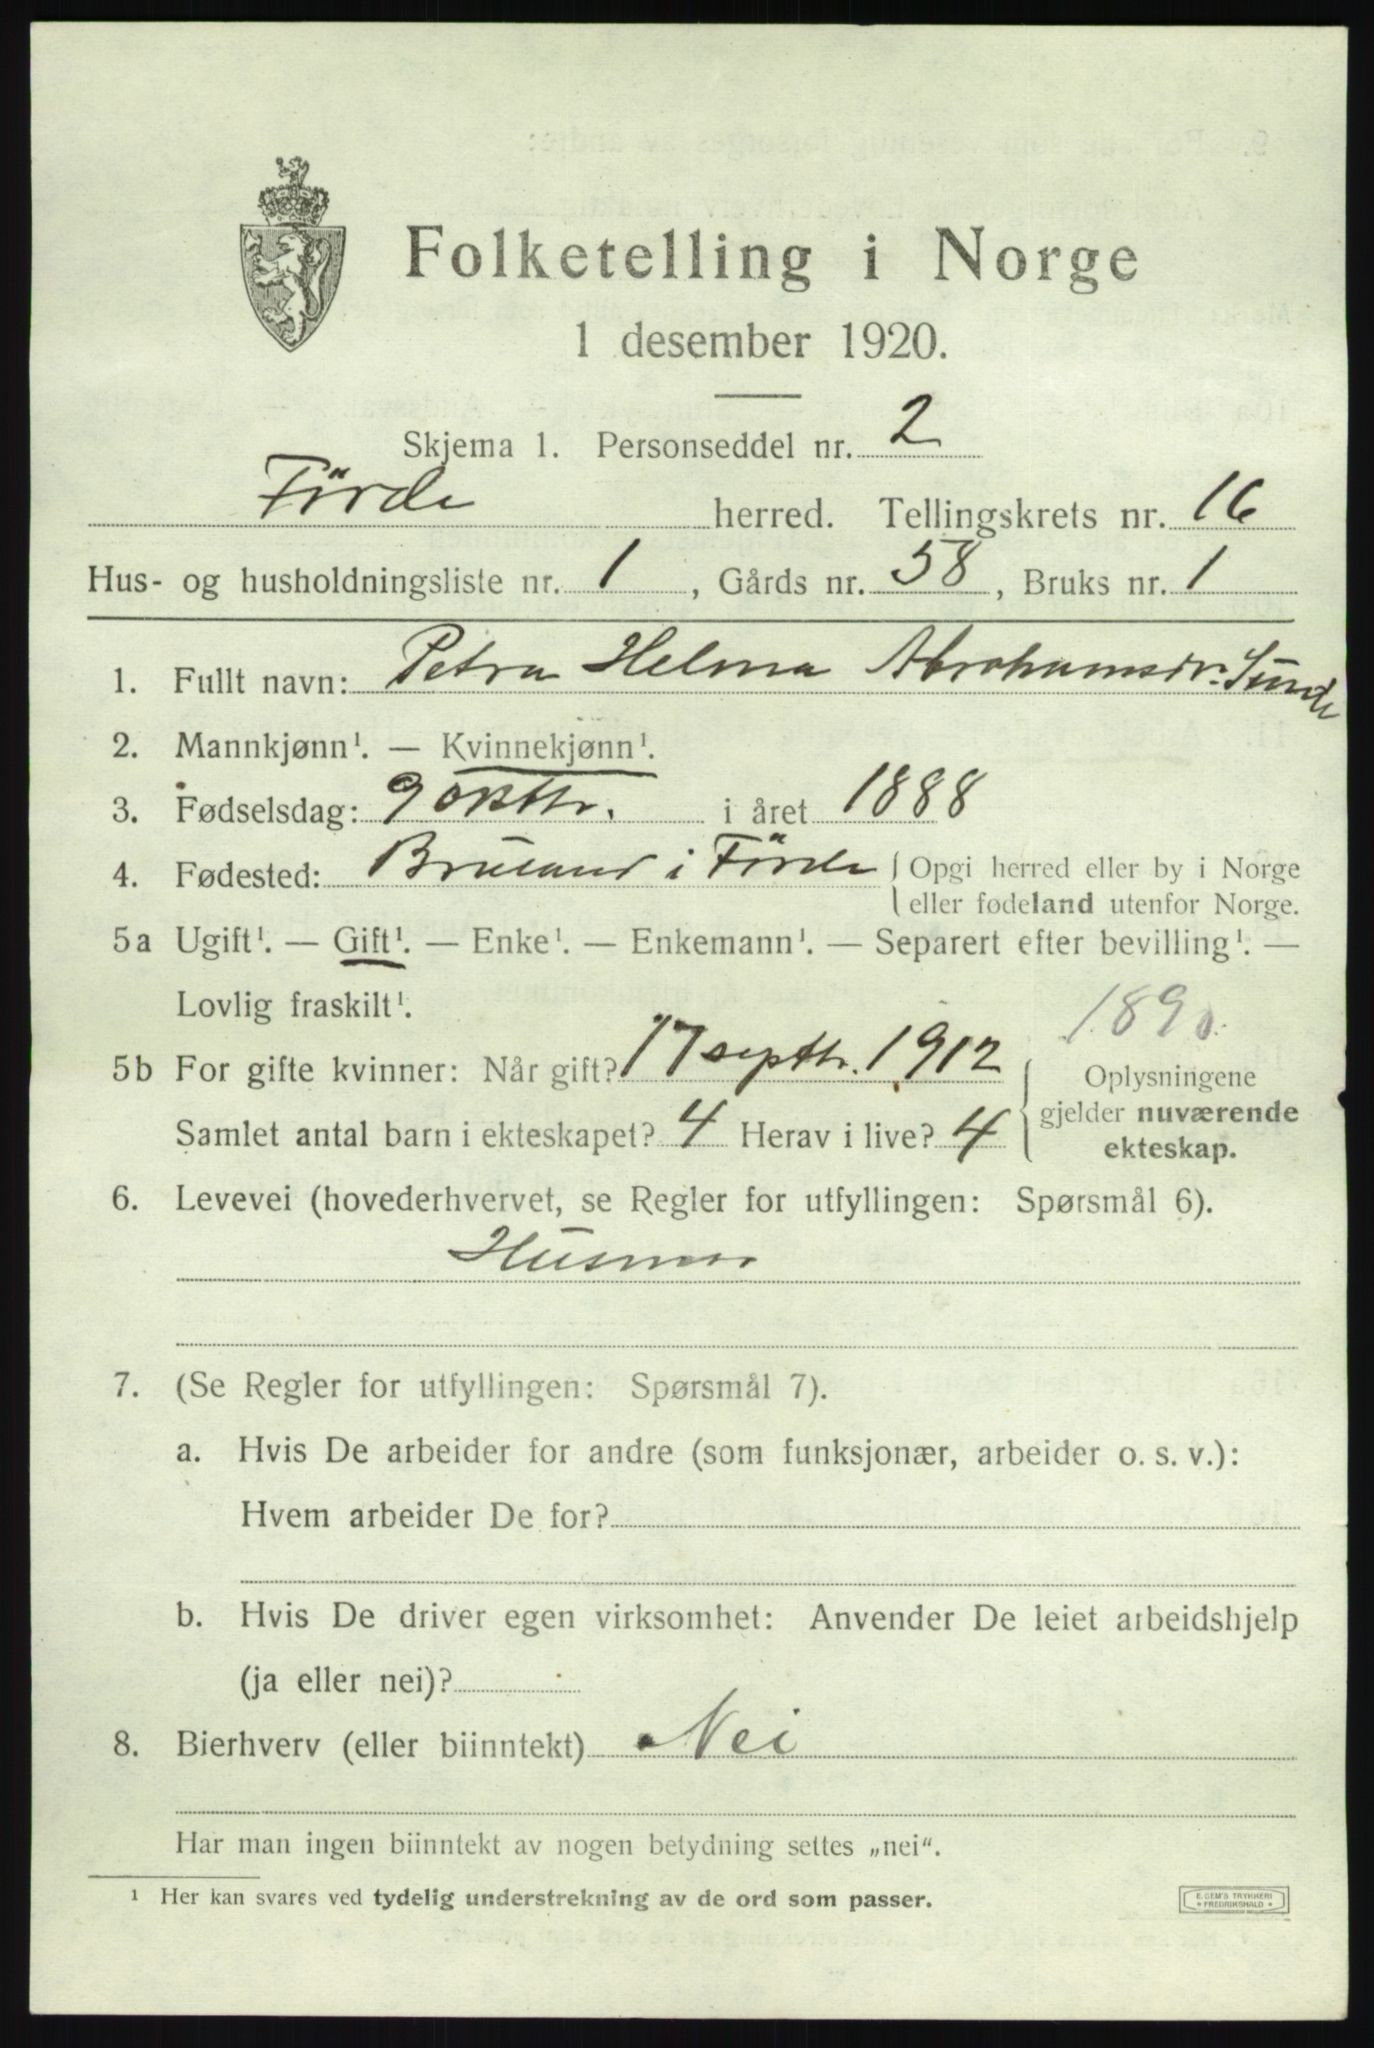 Folketelling i Norge
1 desember 1920.
Skjema 1. Personseddel nr. 2
Förde herred. Tellingskrets nr. 16
Hus- og husholdningsliste nr. 1, Gårds nr. 58, Bruks nr. 1
1. Fullt navn: Petra Helma Abrahamsdr. Sunde
2. Mannkjønn¹. — Kvinnekjønn¹.
3. Fødselsdag: 9 oktbr. i året 1888
4. Fødested: Bruland i Förde { Opgi herred eller by i Norge
eller fødeland utenfor Norge.
5a Ugift¹. — Gift¹. — Enke¹. — Enkemann¹. — Separert efter bevilling¹. —
Lovlig fraskilt¹.
5b For gifte kvinner: Når gift? 17 septbr. 1912 { Oplysningene
Samlet antal barn i ekteskapet? 4 Herav i live? 4 gjelder nuværende
ekteskap.
6. Levevei (hovederhvervet, se Regler for utfyllingen: Spørsmål 6).
Husmor
7. (Se Regler for utfyllingen: Spørsmål 7).
a. Hvis De arbeider for andre (som funksjonær, arbeider o. s. v.):
Hvem arbeider De for?
b. Hvis De driver egen virksomhet: Anvender De leiet arbeidshjelp
(ja eller nei)?
8. Bierhverv (eller biinntekt) Nei
Har man ingen biinntekt av nogen betydning settes „nei“.
¹ Her kan svares ved tydelig understrekning av de ord som passer.
E. SEM'S TRYKKERI
* FREDRIKSHALD *